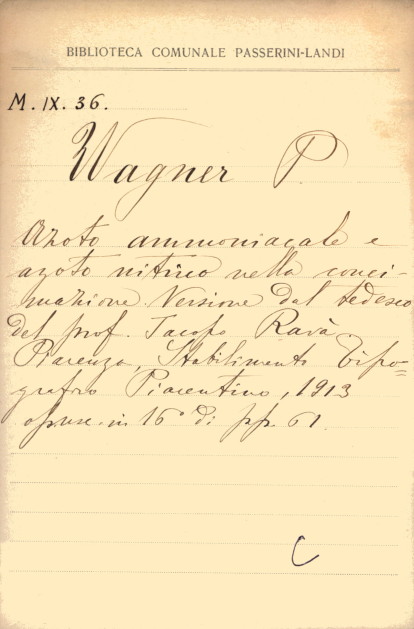 BIBLIOTECA COMUNALE PASSERINI-LANDI
M. IX. 36.
Wagner P.
Azoto ammoniacale e
azoto nitrico nella conci-
mazione. Versione dal tedesco
del prof. Jacopo Ravà
Piacenza, Stabilimento Tipo=
grafico Piacentino, 1913
opusc. in 16° di pp. 61.
C